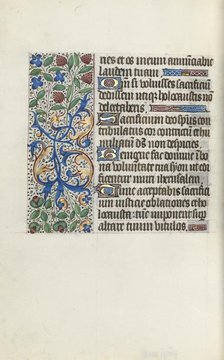 nes et os meum annunciabit
laudem tuam
Qm si voluisses sacrificiu
dedissem utiqz holocaustis no
delectaberis
Sacrificium deo spus con
tribulatus cor contritu et hu
miliatu ds non despicies
Benigne fac domine i bo
na voluntate tua syon ut edi
ficentur muri iherusalem
Tunc acceptabis sacrifi
cium iusticie oblationes et ho
locausta tunc imponent sup
altare tuum vitulos